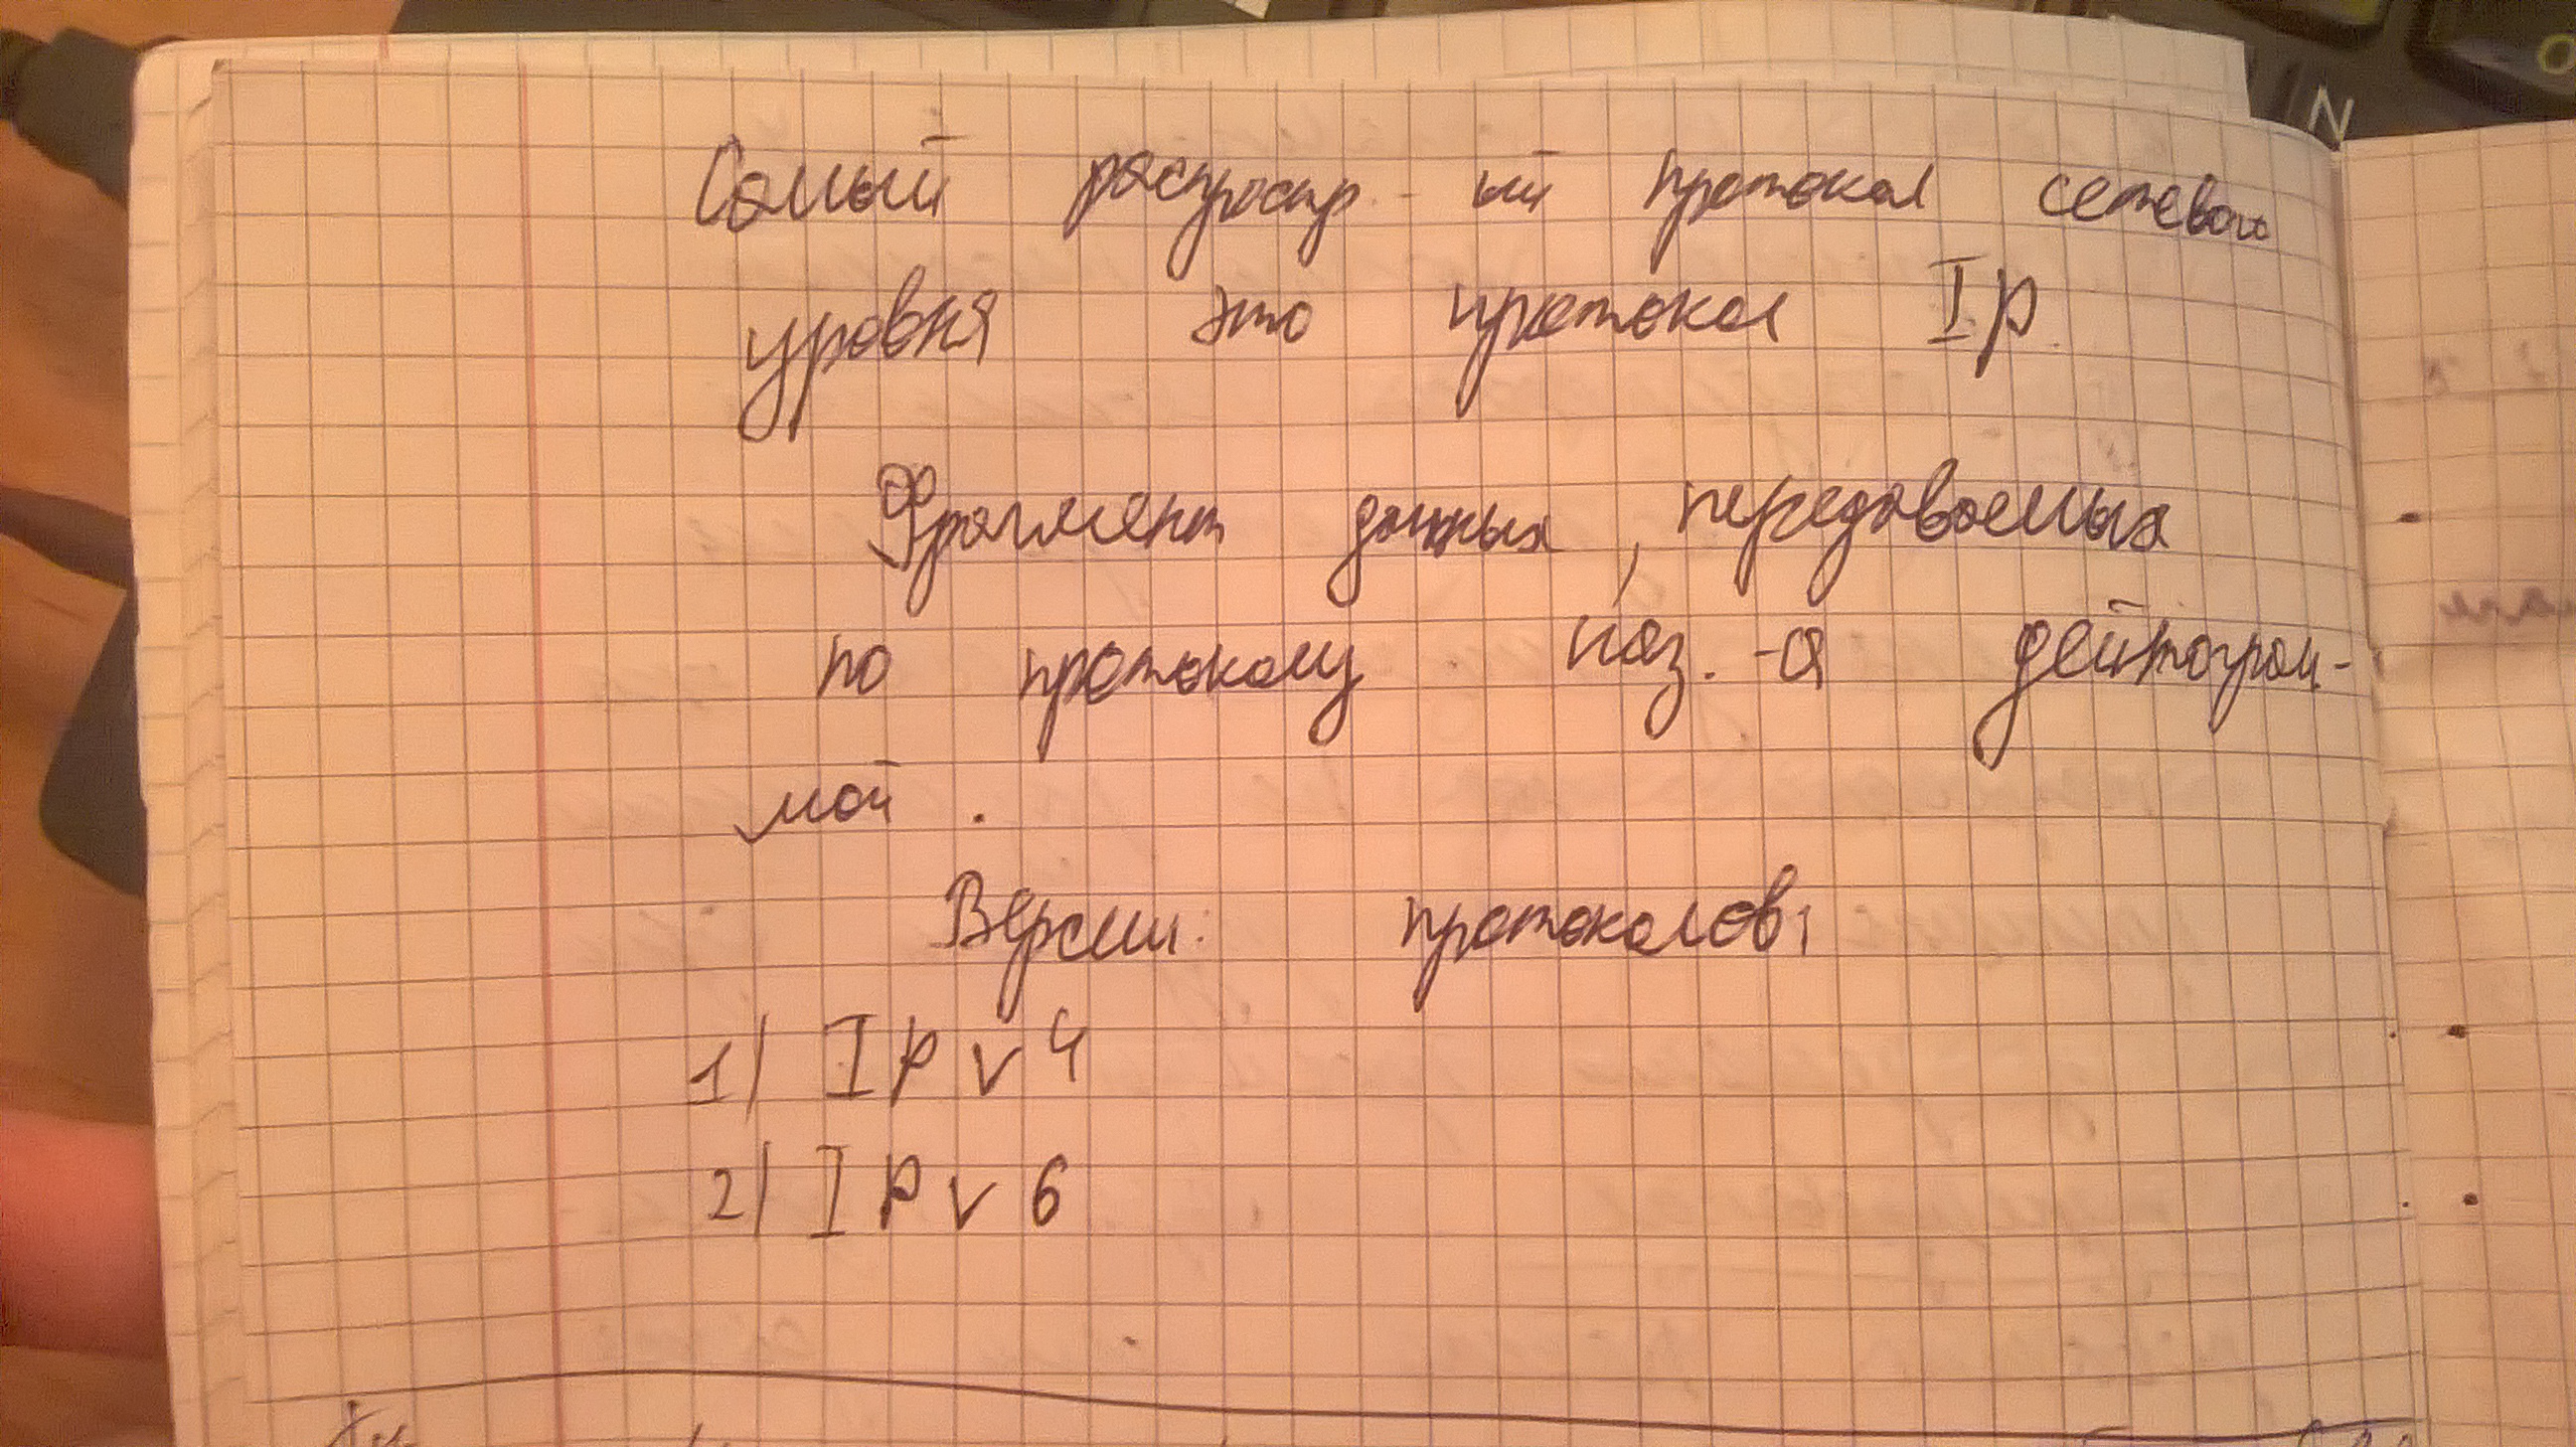 Самый распростр-ый протокол сетевого
уровня это протокол IP.
Фрагмент данных, передаваемых
по протоколу наз.-я дейтограм-
мой.
Версии протоколов:
1) IPv4
2) IPv6